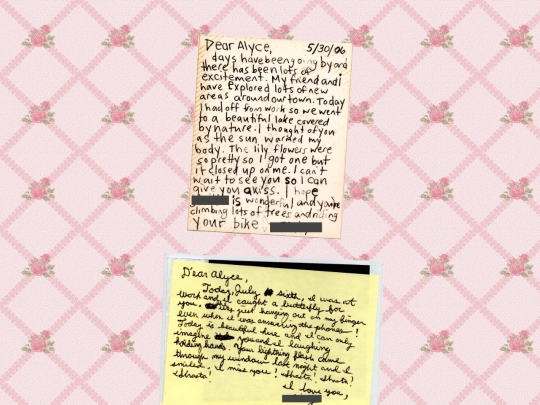 Dear Alyce, 5/30/06
days have been going by and
there has been lots of
excitement. My friend and i
have explored lots of new
areas around our town. Today
I had off from work so we went
to a beautiful lake covered
by nature. I thought of you
as the sun warmed my
body. The lily flowers were
so pretty so I got one but
it closed up on me. I can't
wait to see you so I can
give you a kiss. I hope
is wonderful and you're
climbing lots of trees and riding
your bike
Dear Alyce,
Today, July sixth, I was at
work and I caught a butterfly for
you, it's just hanging out on my finger
even when I was answering the phones!
Today is beautiful here and I can only
imagine you and I laughing
holding hands. Your lightning flash came
through my window last night and I
smiled. I miss you! Shasta! Shasta!
Shasta!
I love you,